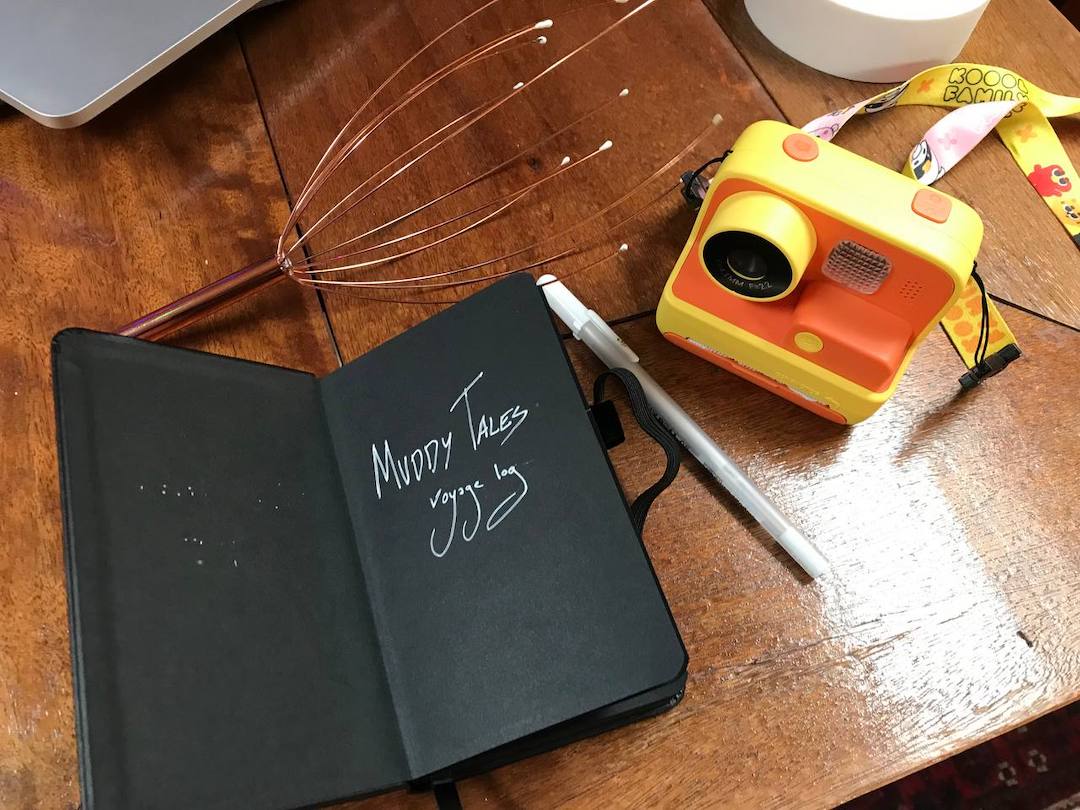 KOOOL
FAMILY
MUDDY TALES
voyage log